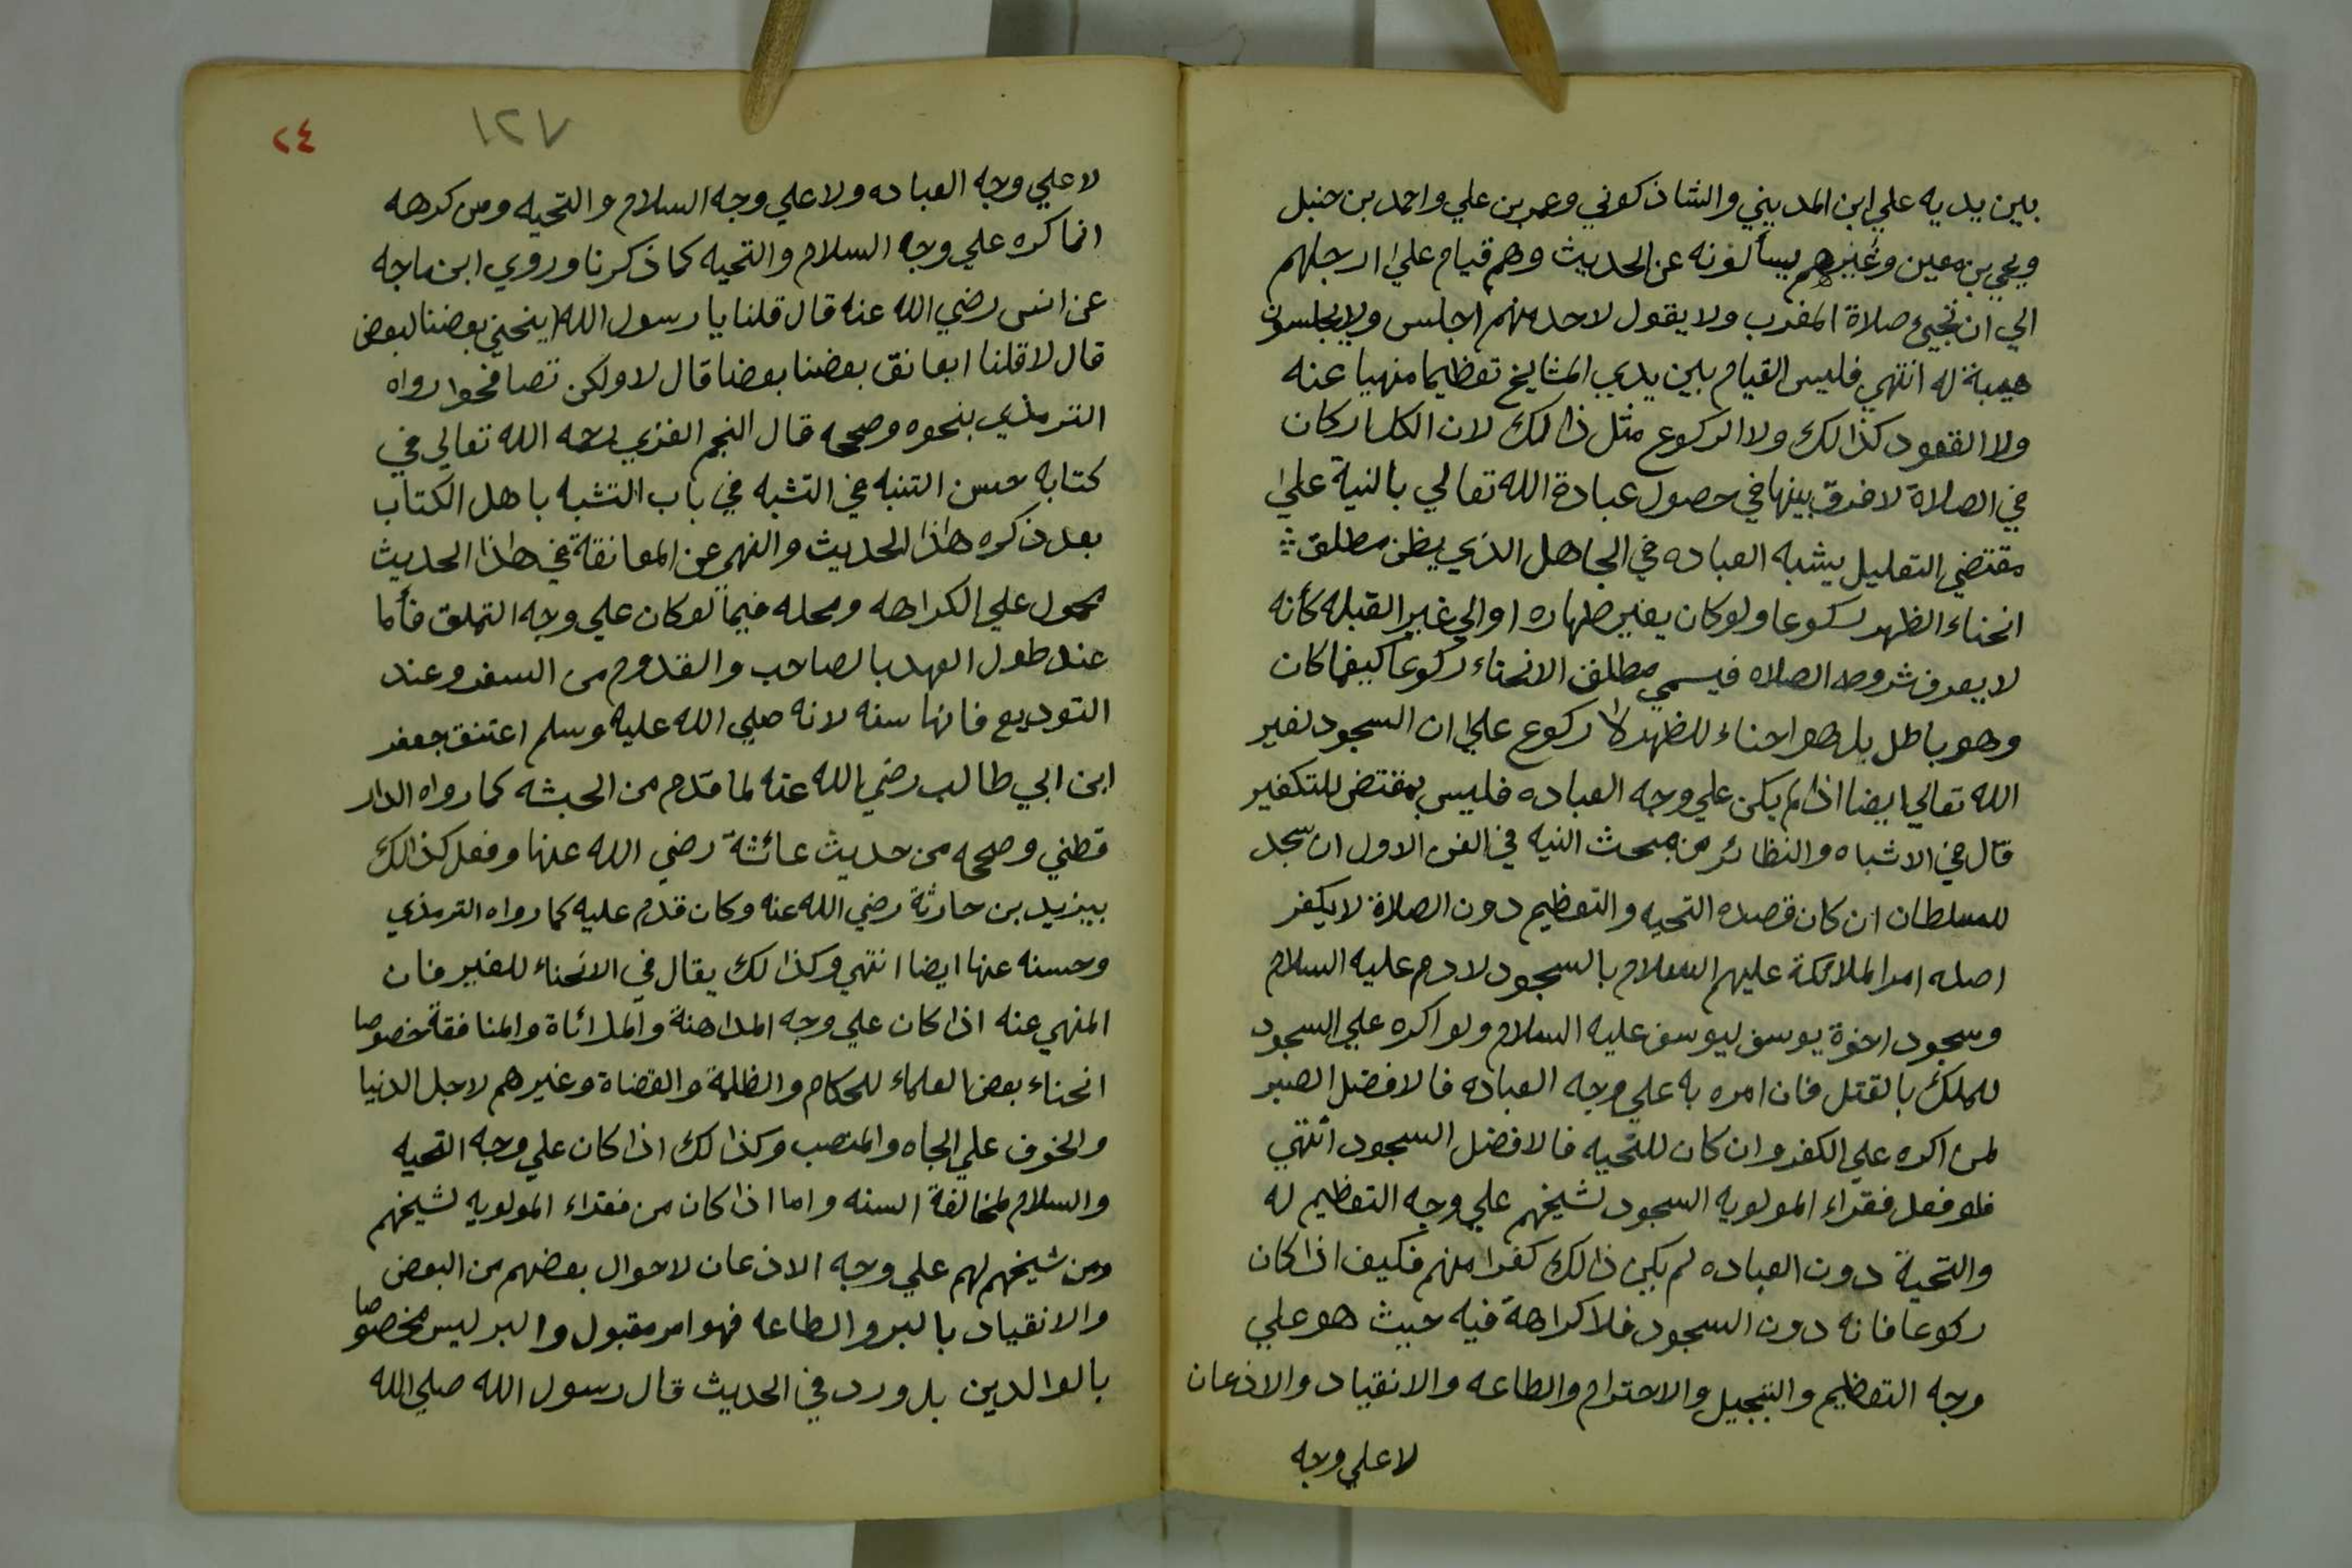 بين يديه علي ابن المديني والشاذكوني وعمر بن علي واحمد بن حنبل
ويحيي بن معين وغيرهم يسألونه عن الحديث وهم قيام علي ارجلهم
الي ان تجيئ صلاة المغرب ولا يقول لاحد منهم اجلس ولا يجلسون
هيبة له انتهي فليس القيام بين يدي المشايخ تعظيما منهيا عنه
ولا القعود كذالك ولا الركوع مثل ذالك لان الكل اركان
في الصلاة لا فرق بينها في حصول عبادة الله تعالي بالنية علي
مقتضي التعليل يشبه العباده في الجاهل الذي يظن مطلق
انحناء الظهر ركوعا ولو كان بغير طهاره او الي غير القبله كأنه
لا يعرف شروط الصلاه فيسمي مطلق الانحناء ركوعا كيفما كان
وهو باطل بل هو احناء للظهر لا ركوع علي ان السجود لغير
الله تعالي ايضا اذا لم يكن علي وجه العباده فليس بمقتض للتكفير
قال في الاشباه والنظائر من مبحث النيه في الفن الاول ان سجد
للسلطان ان كان قصده التحيه والتعظيم دون الصلاة لا يكفر
اصله امر الملائكة عليهم السلام بالسجود لادم عليه السلام
وسجود اخوة يوسف ليوسف عليه السلام ولو اكره علي السجود
للملك بالقتل فان امره به علي وجه العباده فالافضل الصبر
لمن اكره علي الكفر وان كان للتحيه فالافضل السجود انتهي
فلو فعل فقراء المولويه السجود لشيخهم علي وجه التعظيم له
والتحية دون العباده لم يكن ذالك كفرا منهم فكيف اذا كان
ركوعا فانه دون السجود فلا كراهة فيه حيث هو علي
وجه التعظيم والتبجيل والاحترام والطاعه والانقياد والاذعان
لا علي وجه
٢٤
١٢٧
لا علي وجه العباده ولا علي وجه السلام والتحيه ومن كرهه
انما كره علي وجه السلام والتحيه كما ذكرنا وروي ابن ماجه
عن انس رضي الله عنه قال قلنا يا رسول الله اينحني بعضنا لبعض
قال لا قلنا ايعانق بعضنا بعضا قال لا ولكن تصافحوا رواه
الترمذي بنحوه وصححه قال النجم الغزي رحمه الله تعالي في
كتابه حسن التنبه في التشبه في باب التشبه باهل الكتاب
بعد ذكره هذا الحديث والنهي عن المعانقة في هذا الحديث
محمول علي الكراهه ومحله فيما لو كان علي وجه التملق فأما
عند طول العهد بالصاحب والقدوم من السفر وعند
التوديع فانها سنه لانه صلي الله عليه وسلم اعتنق جعفر
ابن ابي طالب رضي الله عنه لما قدم من الحبشه كما رواه الدار
قطني وصححه من حديث عائشة رضي الله عنها وفعل كذالك
بيزيد بن حارثة رضي الله عنه وكان قدم عليه كما رواه الترمذي
وحسنه عنها ايضا انتهي وكذالك يقال في الانحناء للغير فان
المنهي عنه اذا كان علي وجه المداهنة والمراناة والمنافقة خصوصا
انحناء بعض العلماء للحكام والظلمة والقضاة وغيرهم لاجل الدنيا
والخوف علي الجاه والمنصب وكذالك اذا كان علي وجه التحيه
والسلام لمخالفة السنه واما اذا كان من فقراء المولويه لشيخهم
ومن شيخهم لهم علي وجه الاذعان لاحوال بعضهم من البعض
والانقياد بالبر والطاعه فهو امر مقبول والبر ليس مخصوصا
بالوالدين بل ورد في الحديث قال رسول الله صلي الله